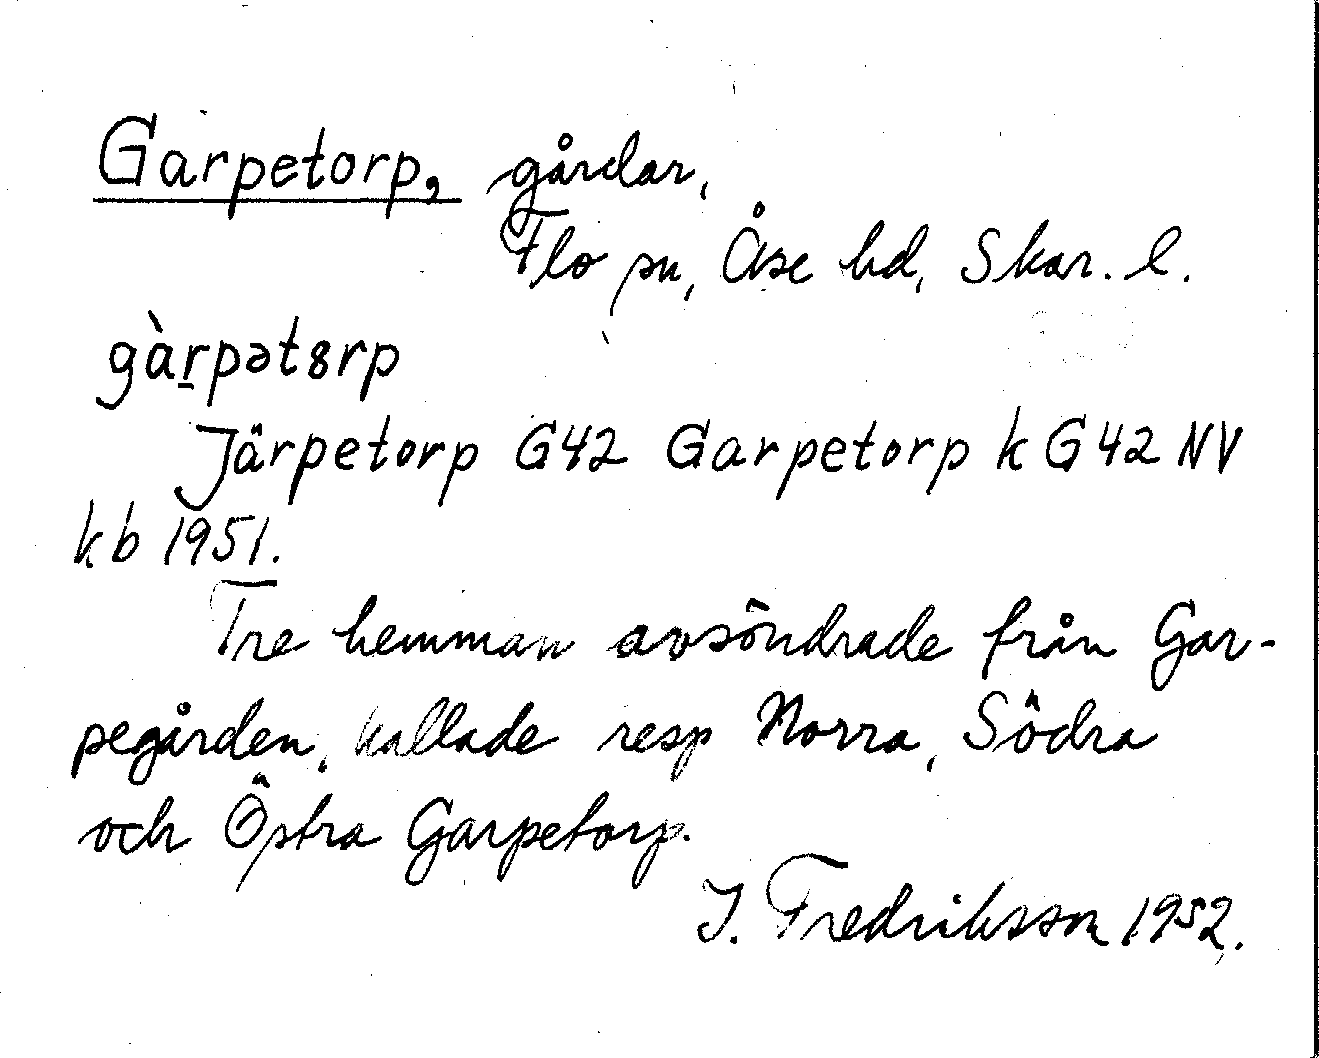 Garpetorp, gårdar,
Flo sn, Åse hd, Skar. l.
gàr̠pət8rp
Järpetorp G42 Garpetorp k G42 NV
kb 1951.
Tre hemman avsöndrade från Gar-
pegården, kallade resp Norra, Södra
och Östra Garpetorp.
J. Fredriksson 1952.